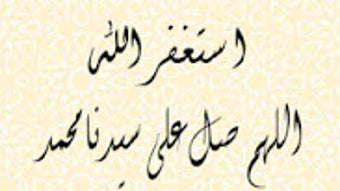 استغفر الله
اللهم صل على سيدنا محمد